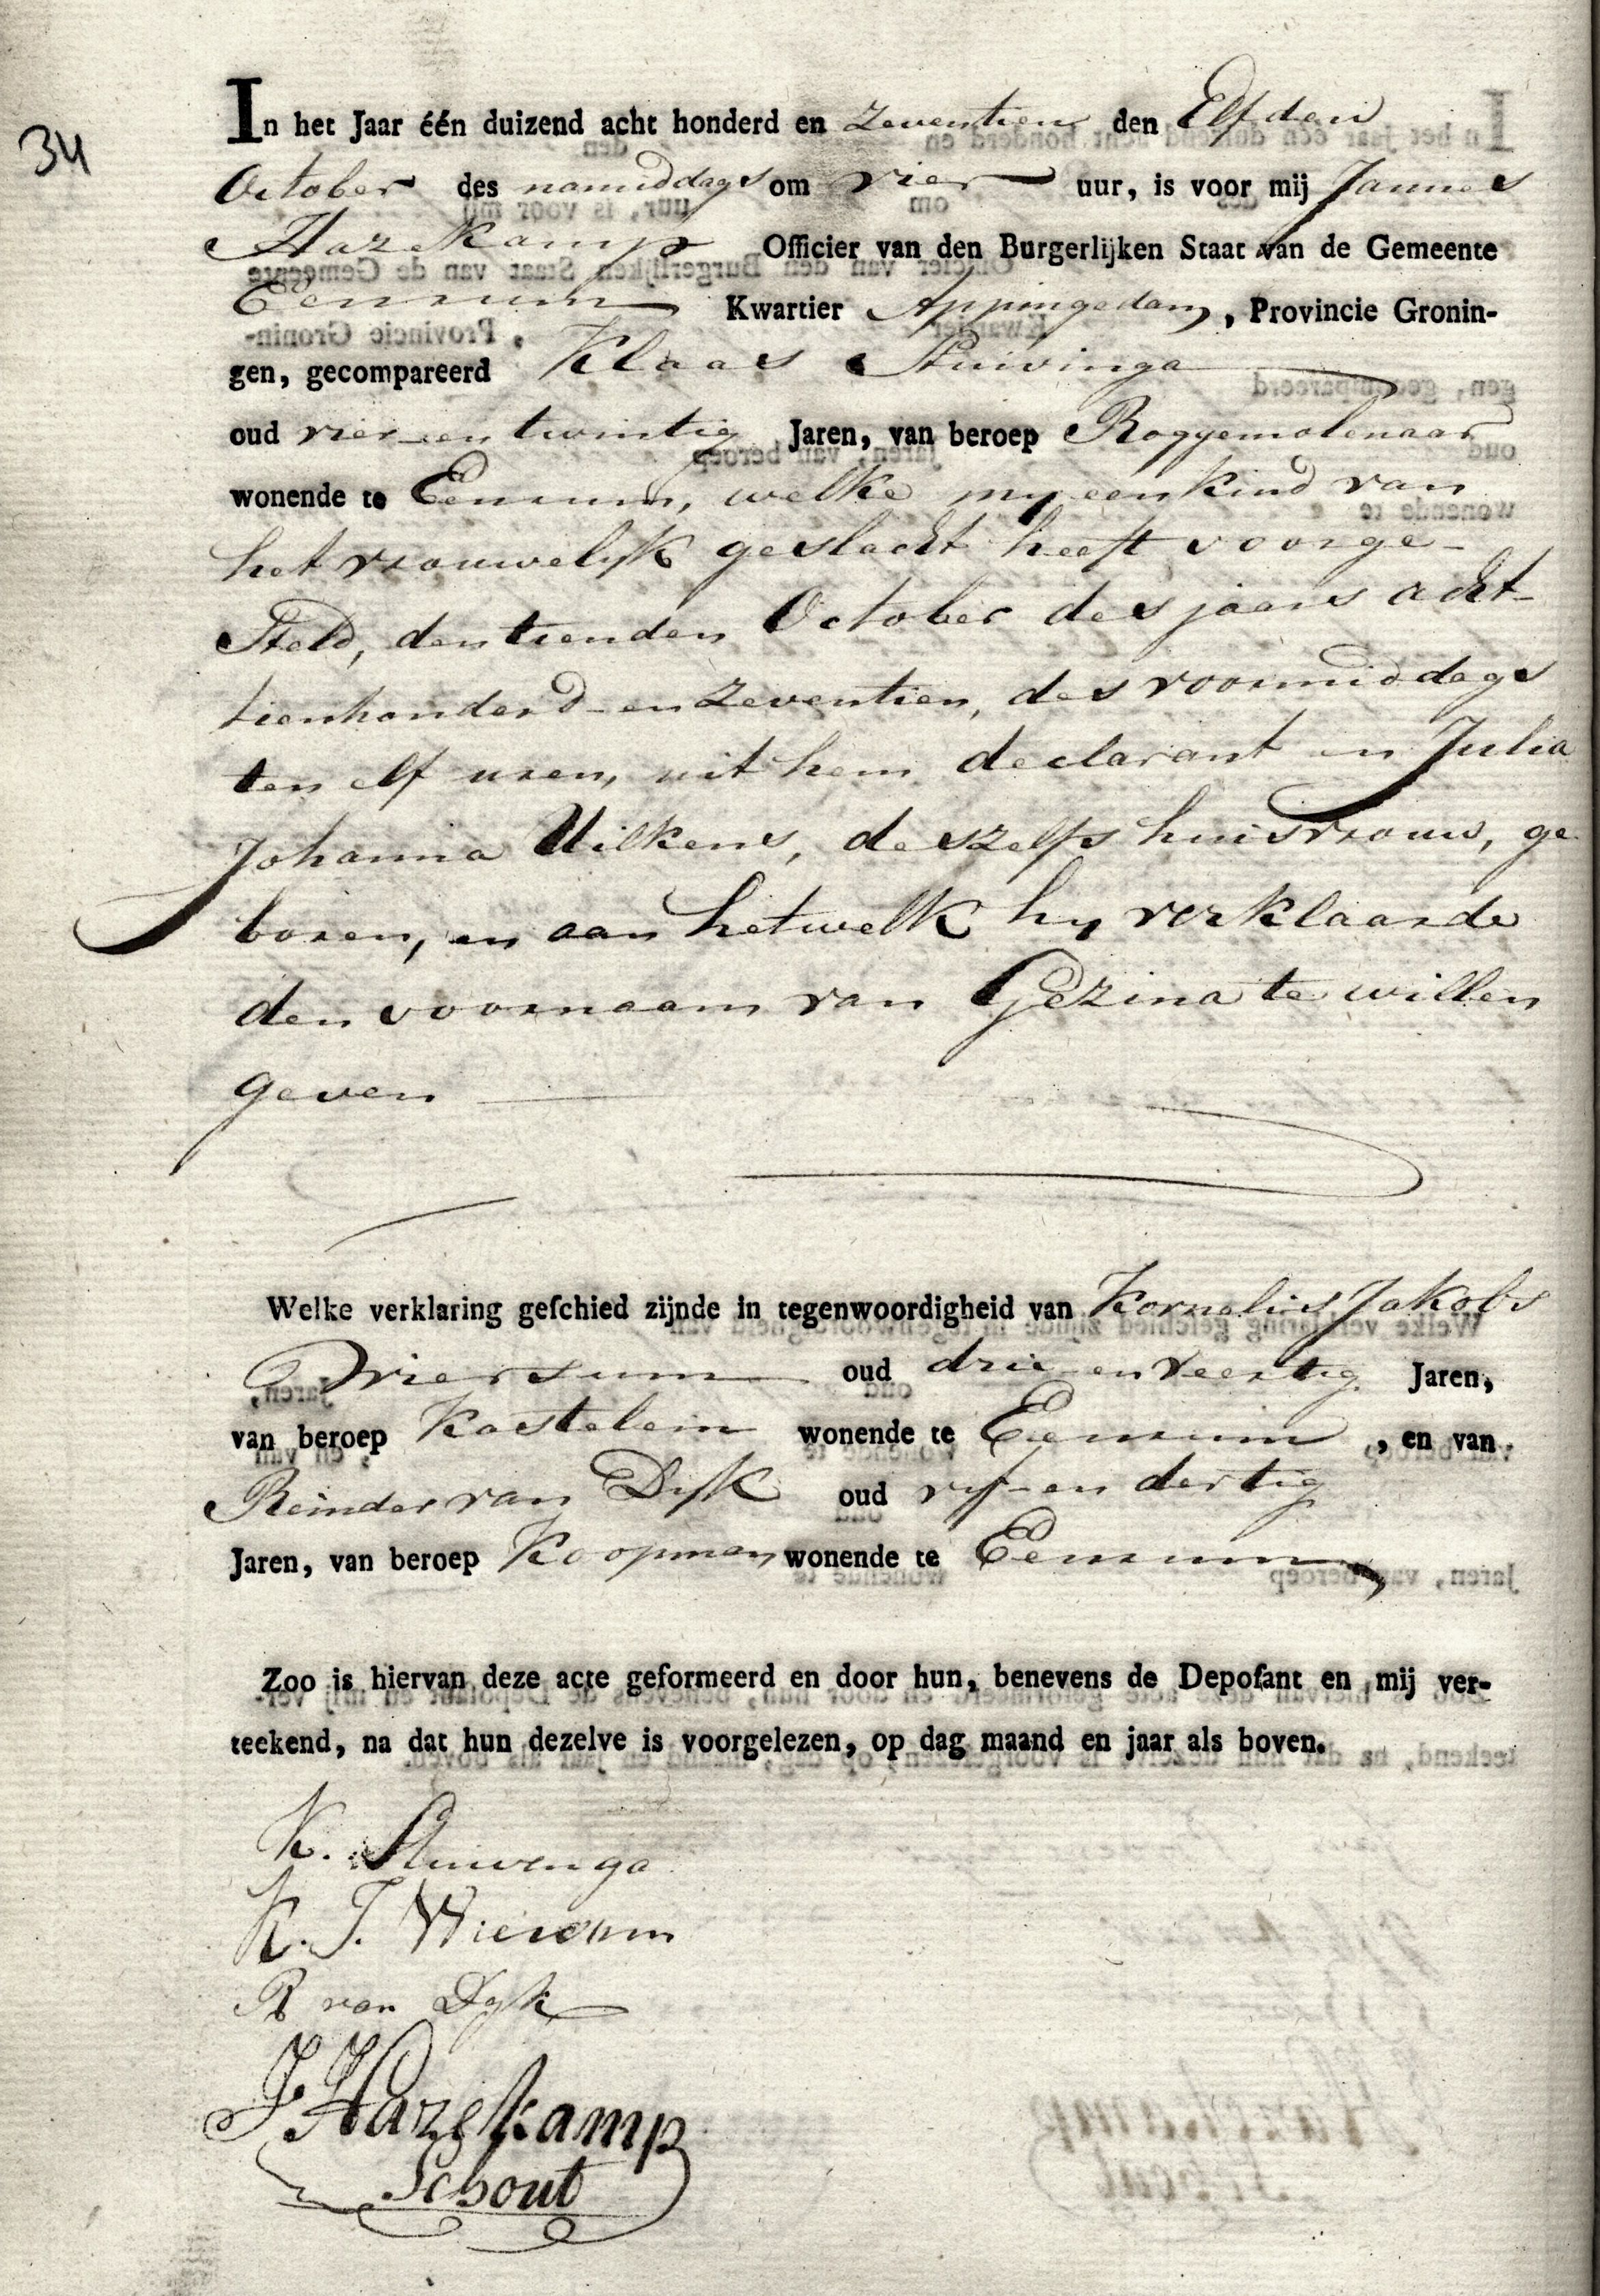 34
In het Jaar één duizend acht honderd en Zeventien den Elfden
October des namiddags om vier uur, is voor mij Jannes
Hazekamp Officier van den Burgerlijken Staat van de Gemeente
Eenrum Kwartier Appingedam, Provincie Gronin-
gen, gecompareerd Klaas Stuivinga
oud vier en twintig Jaren, van beroep Roggemolenaar
wonende te Eenrum, welke my een kind van
het vrouwelyk geslacht heeft voorge-
steld, den tienden October des jaars acht-
tienhonderd en zeventien, des voormiddags
ten elf uren, uit hem declarant en Julia
Johanna Uilkens, deszelfs huisvrouw, ge
boren, en aan hetwelk hy verklaarde
den voornaam van Gezina te willen
geven
Welke verklaring geſchied zijnde in tegenwoordigheid van Kornelis Jakobs
Wiersum oud drie en veertig Jaren,
van beroep Kastelein wonende te Eenrum, en van
Reinder van Dyk oud vyf en dertig
Jaren, van beroep Koopman wonende te Eenrum
Zoo is hiervan deze acte geformeerd en door hun, benevens de Depoſant en mij ver-
teekend, na dat hun dezelve is voorgelezen, op dag maand en jaar als boven.
K. Stuivenga
K. J. Wiersum
R van Dyk
J. Hazekamp
Schout